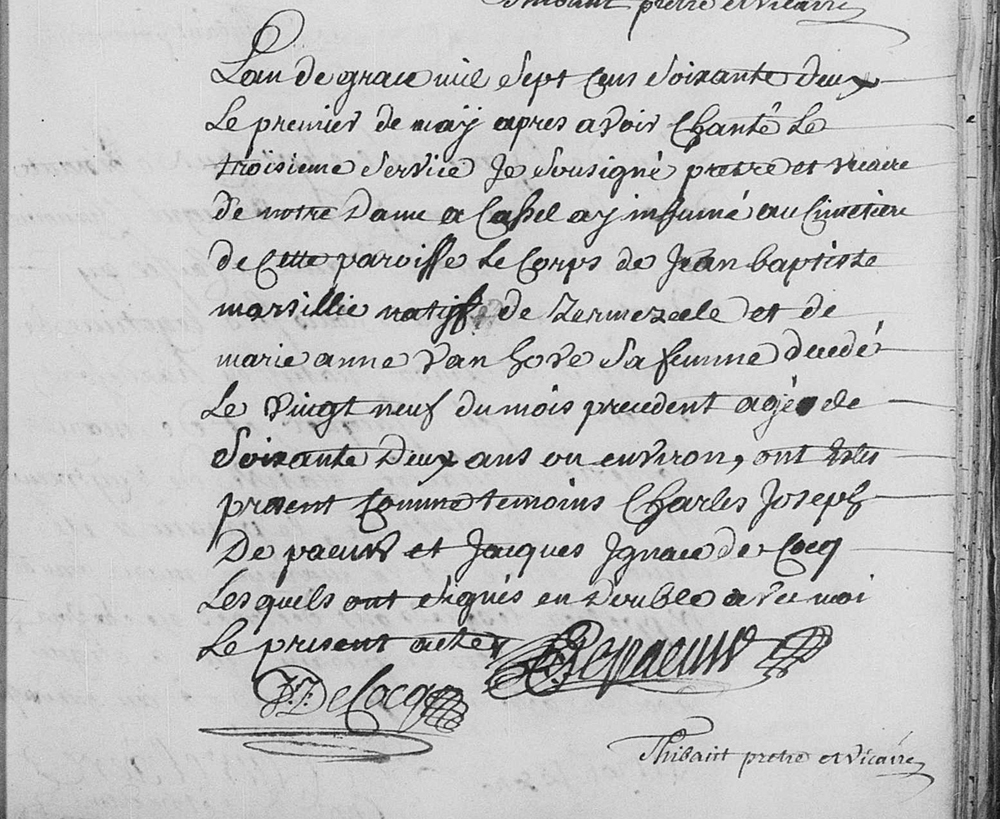 Thibaut pretre et vicaire
Lan de grace mil sept cens soixante deux
Le premier de maÿ apres avoir Chanté Le
troisieme service Je sousigné pretre et vicaire
de notre Dame a Cassel aÿ inhumé au Cimetiere
de Cette paroisse Le Corps de Jean baptiste
marsillie natif de Zermezeele et de
marie anne van hove sa femme decedé
Le vingt neuf du mois precedent agé de
soixante Deux ans ou environ, ont estes
present Comme temoins Charles Joseph
De paeuw et Jacques Jgnace de Cocq
Les quels ont signés en Double avec moi
Le present acte
Depaeuw
J: J: De Cocq
Thibaut pretre et vicaire